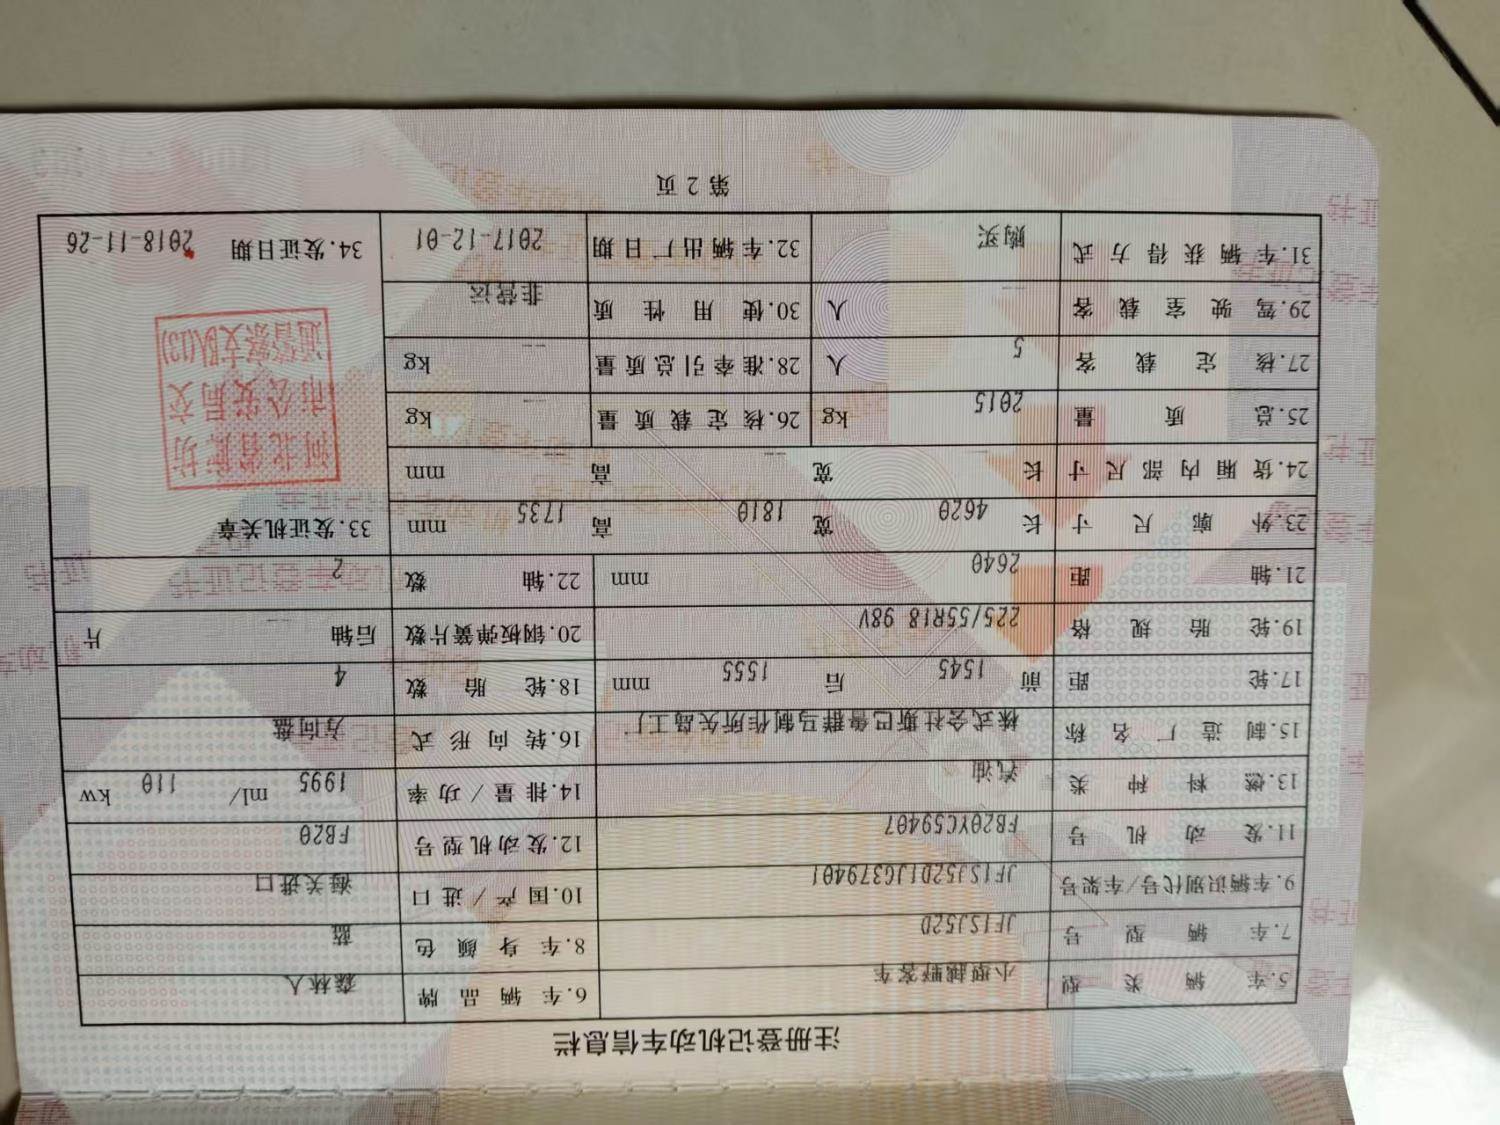 注册登记机动车信息栏
5.车辆类型 小型越野客车 6.车辆品牌 森林人
7.车辆型号 JF1SJ52D 8.车身颜色 蓝
9.车辆识别代号/车架号 JF1SJ52D1JG379401 10.国产/进口 海关进口
11.发动机号 FB20YC59407 12.发动机型号 FB20
13.燃料种类 汽油 14.排量/功率 1995 ml/ 110 kw
15.制造厂名称 株式会社斯巴鲁群马制作所矢岛工厂 16.转向形式 方向盘
17.轮距 前 1545 后 1555 mm 18.轮胎数 4
19.轮胎规格 225/55R18 98V 20.钢板弹簧片数 后轴 片
21.轴距 2640 mm 22.轴数 2
23.外廓尺寸 长 4620 宽 1810 高 1735 mm 33.发证机关章
24.货厢内部尺寸 长 -- 宽 -- 高 -- mm
河北省廊坊
市公安局交
通警察支队(13)
25.总质量 2015 kg 26.核定载质量 -- kg
27.核定载客 5 人 28.准牵引总质量 -- kg
29.驾驶室载客 -- 人 30.使用性质 非营运
31.车辆获得方式 购买 32.车辆出厂日期 2017-12-01 34.发证日期 2018-11-26
第 2 页